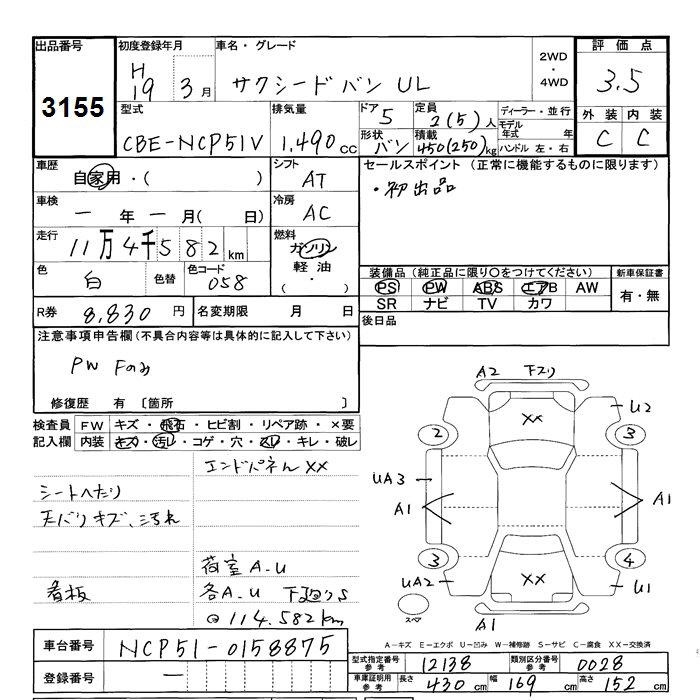 出品番号 初度登録年月 車名・グレード 2WD・4WD 評価点
3155 H19 3月 サクシードバン UL 3.5
型式 排気量 ドア 5 定員 2(5)人 ディーラー・並行 外装 内装
CBE-NCP51V 1,490cc 形状 バン 積載 450(250)kg モデル年式 年 ハンドル 左・右 C C
車歴 自家用・( ) シフト AT セールスポイント(正常に機能するものに限ります)
車検 一年一月( 日) 冷房 AC ・初出品
走行 11万4千582km 燃料 ガソリン
色 白 色替 色コード 058 軽油・ 装備品(純正品に限り○をつけてください) 新車保証書
PS PW ABS エアB AW 有・無
R券 8,830円 名変期限 月 日 SR ナビ TV カワ
注意事項申告欄(不具合内容等は具体的に記入して下さい) 後日品
PW Fのみ
修復歴 有〔箇所 〕
検査員 FW キズ・飛石・ヒビ割・リペア跡・×要
記入欄 内装 キズ・汚レ・コゲ・穴・スレ・キレ・破レ
エンドパネルXX
シートへたり
天バリキズ、汚れ
荷室A-U
看板 各A-U 下廻りS
114.582km
A2 下スリ
XX
U2
2 3
UA3
A1 A1
3 4
UA2 XX U1
スペア A1
車台番号 NCP51-0158875
A-キズ E-エクボ U-凹み W-補修跡 S-サビ C-腐食 XX-交換済
登録番号 一
型式指定番号 参考 12138 類別区分番号 参考 0028
車庫証明用 参考 長さ 430cm 幅 169cm 高さ 152cm